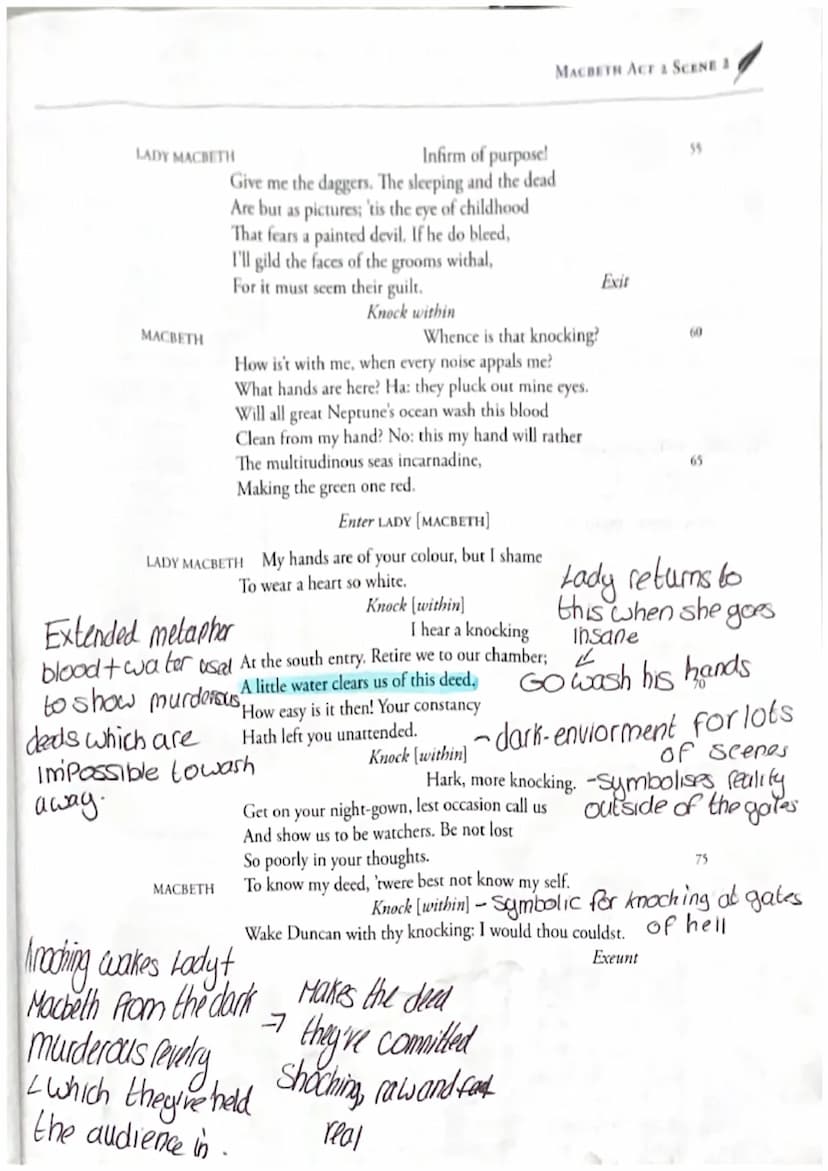 MACBETH ACT 2 SCENE 2
LADY MACBETH Infirm of purpose! 55
Give me the daggers. The sleeping and the dead
Are but as pictures; 'tis the eye of childhood
That fears a painted devil. If he do bleed,
I'll gild the faces of the grooms withal,
For it must seem their guilt. Exit
Knock within
MACBETH Whence is that knocking? 60
How is't with me, when every noise appals me?
What hands are here? Ha: they pluck out mine eyes.
Will all great Neptune's ocean wash this blood
Clean from my hand? No: this my hand will rather
The multitudinous seas incarnadine, 65
Making the green one red.
Enter LADY [MACBETH]
LADY MACBETH My hands are of your colour, but I shame
To wear a heart so white.
Knock [within]
I hear a knocking
At the south entry. Retire we to our chamber;
A little water clears us of this deed.
How easy is it then! Your constancy 70
Hath left you unattended.
Knock [within]
Hark, more knocking.
Get on your night-gown, lest occasion call us
And show us to be watchers. Be not lost
So poorly in your thoughts. 75
MACBETH To know my deed, 'twere best not know my self.
Knock [within]
Wake Duncan with thy knocking: I would thou couldst.
Exeunt
Lady returns to
this when she goes
insane
Go wash his hands
Extended metaphor
blood + water used
to show murderous
deeds which are
impossible to wash
away.
- dark-enviorment for lots
of scenes
- Symbolises reality
outside of the gates
- Symbolic for knocking at gates
of hell
knocking wakes Lady +
Macbeth from the dark
murderous revelry
which they've held
the audience in.
→ Makes the deed
they've committed
shocking, raw and
real